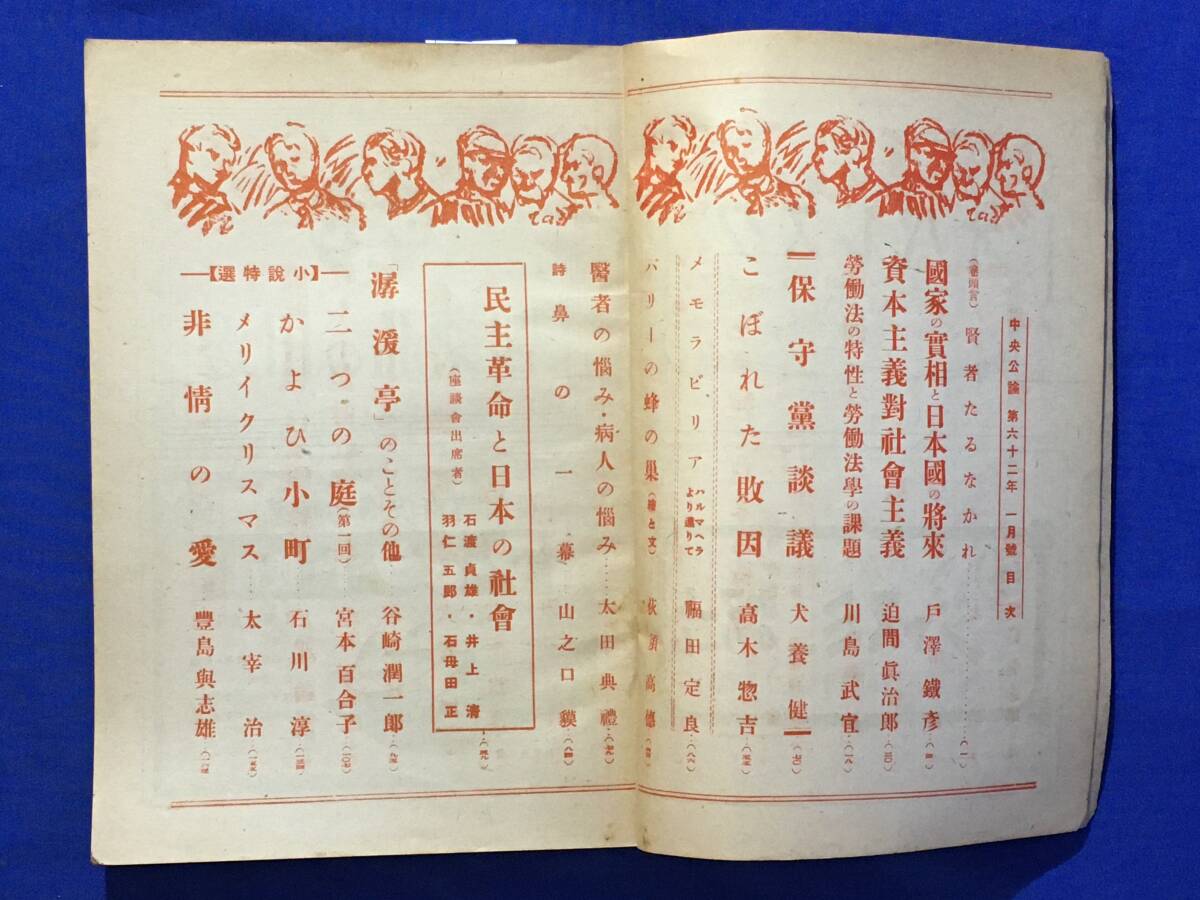 中央公論 第六十二年 一月號 目次
(卷頭言) 賢者たるなかれ………(一)
國家の實相と日本國の將來 戶澤鐵彥
資本主義對社會主義 迫間眞治郎
勞働法の特性と勞働法學の課題 川島武宜
保守黨談議 犬養健
こぼれた敗因 高木惣吉
メモラビリア ハルマヘラより還りて 福田定良
パリーの蜂の巢(繪と文) 荻須高德
醫者の惱み・病人の惱み…… 太田典禮
詩 鼻のある一幕 山之口貘
民主革命と日本の社會
(座談會出席者) 石渡貞雄・井上淸
羽仁五郎・石母田正
「潺湲亭」のことその他 谷崎潤一郎
【小說特選】
二つの庭(第一回) 宮本百合子
かよひ小町 石川淳
メリイクリスマス 太宰治
非情の愛 豐島與志雄